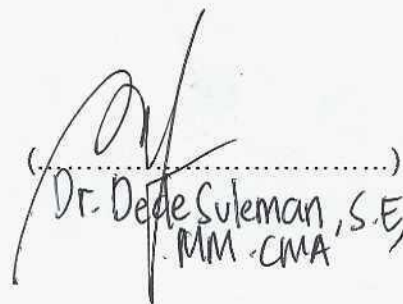 (..............................................)
Dr. Dede Suleman, S.E,
MM. CMA